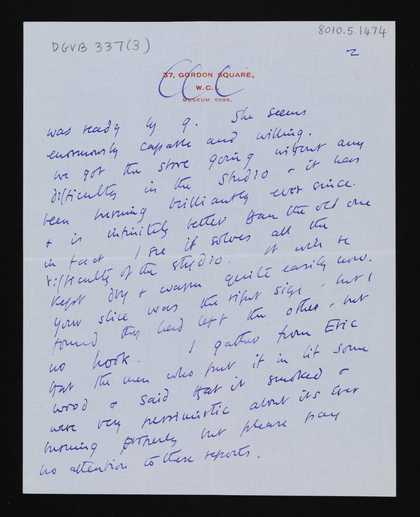 DGVB 337(3)
8010.5.1474
2
37, GORDON SQUARE,
W.C.1
MUSEUM
was ready by 9. She seems
enormously capable and willing.
We got the stove going without any
difficulty in the studio & it has
been burning brilliantly ever since.
& is infinitely better than the old one
in fact I see it solves all the
difficulty of the studio. It will be
kept dry & warm quite easily now.
Your slice was the right size, but I
found they had left the other, but
no hook. I gather from Eric
that the men who put it in lit some
wood & said that it smoked &
were very pessimistic about its ever
burning properly but please pay
no attention to these reports.